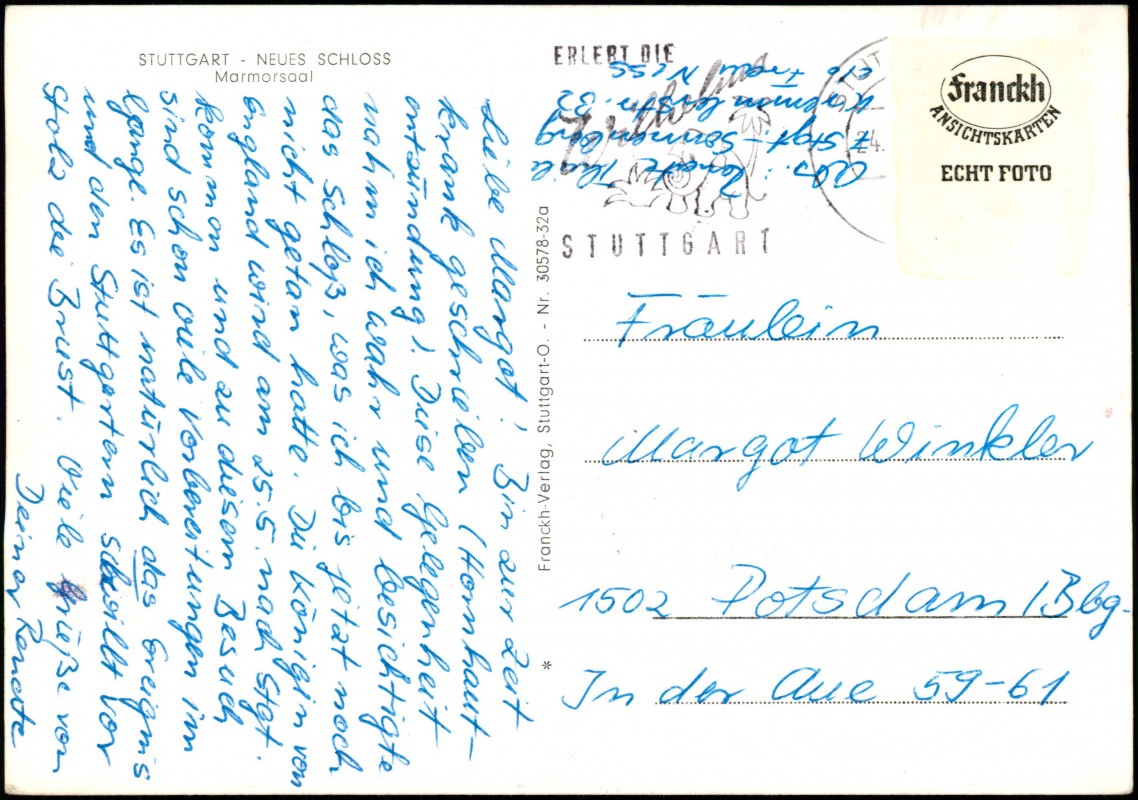 STUTTGART - NEUES SCHLOSS
Marmorsaal
Liebe Margot! Bin zur Zeit
krank geschrieben (Hornhaut-
entzündung). Diese Gelegenheit
nahm ich wahr und besichtigte
das Schloß, was ich bis jetzt noch
nicht getan hatte. Die Königin von
England wird am 25.5. nach Stgt.
kommen und zu diesem Besuch
sind schon viele Vorbereitungen im
Gange. Es ist natürlich das Ereignis
und den Stuttgartern schwillt vor
Stolz die Brust. Viele Grüße von
Deiner Renate
Franckh-Verlag, Stuttgart-O. - Nr. 30578-32a
*
ERLEBT DIE
Wilhelma
STUTTGART
24.
Abs.: Renate
7 Stgt-Sonnenberg
32
c/o Frau
Franckh
ANSICHTSKARTEN
ECHT FOTO
Fräulein
Margot Winkler
1502 Potsdam/Bbg.
In der Aue 59-61